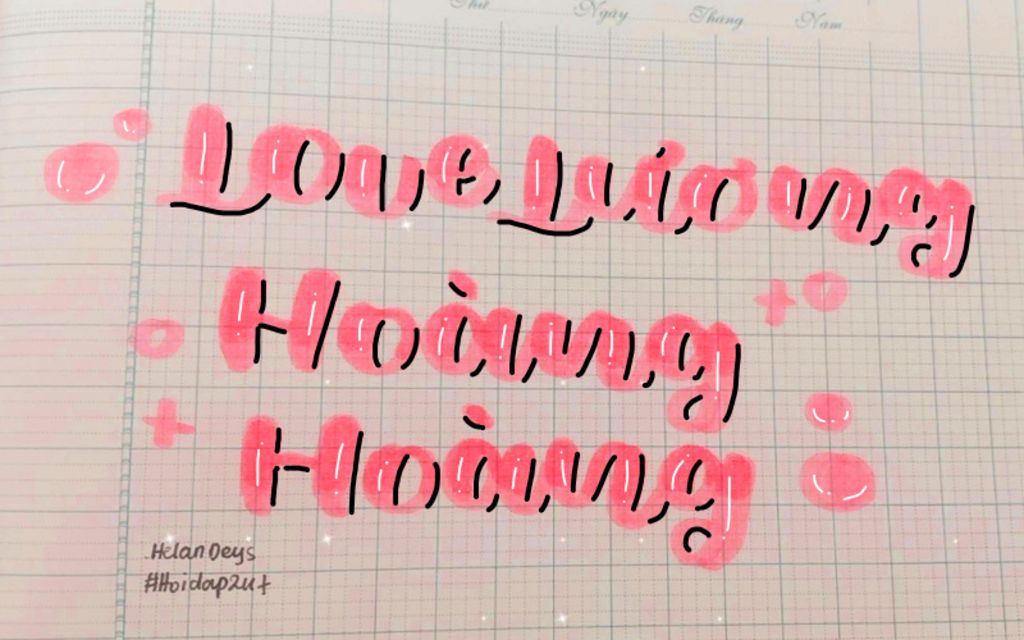 Thứ Ngày Tháng Năm
Love Lương
Hoàng
Hoàng
Helan Deys
#Hoidap247